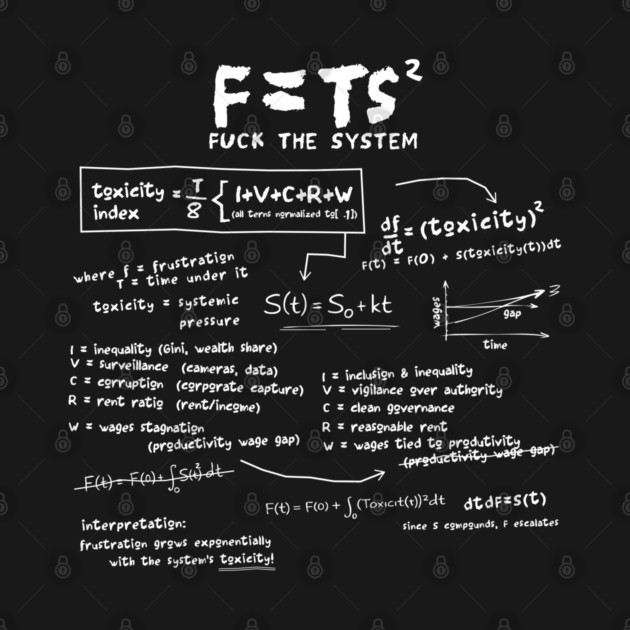 F=TS²
FUCK THE SYSTEM
toxicity index = T/8 { I+V+C+R+W
(all terns normalized to[ .1])
df/dt = (toxicity)²
F(t) = F(0) + S(toxicity(t))dt
where f = frustration
T = time under it
toxicity = systemic
pressure
S(t) = S₀ + kt
wages
gap
time
I = inequality (Gini, wealth share)
V = surveillance (cameras, data)
C = corruption (corporate capture)
R = rent ratio (rent/income)
W = wages stagnation
(productivity wage gap)
I = inclusion & inequality
V = vigilance over authority
C = clean governance
R = reasonable rent
W = wages tied to produtivity
(productivity wage gap)
F(t) = F(0) + ∫₀ S(t)² dt
F(t) = F(0) + ∫₀ (Toxicit(t))² dt
dtdF=S(t)
since S compounds, F escalates
interpretation:
frustration grows exponentially
with the system's toxicity!